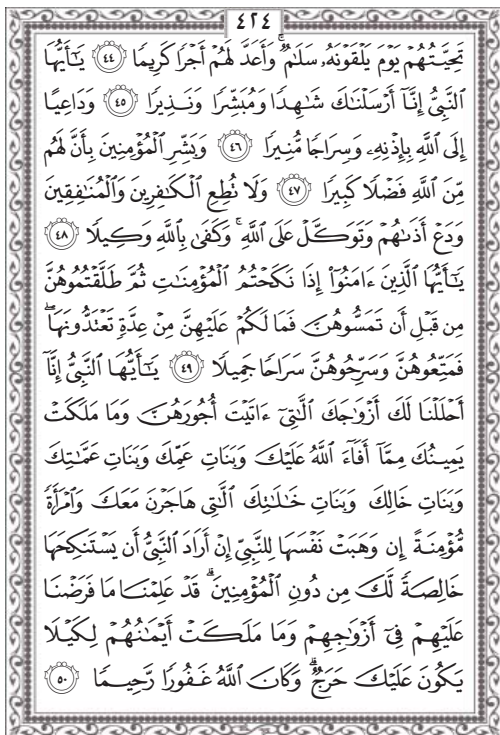 ٤٢٤
تَحِيَّتُهُمْ يَوْمَ يَلْقَوْنَهُۥ سَلَٰمٌۚ وَأَعَدَّ لَهُمْ أَجْرًا كَرِيمًا ٤٤ يَٰٓأَيُّهَا
ٱلنَّبِىُّ إِنَّآ أَرْسَلْنَٰكَ شَٰهِدًا وَمُبَشِّرًا وَنَذِيرًا ٤٥ وَدَاعِيًا
إِلَى ٱللَّهِ بِإِذْنِهِۦ وَسِرَاجًا مُّنِيرًا ٤٦ وَبَشِّرِ ٱلْمُؤْمِنِينَ بِأَنَّ لَهُم
مِّنَ ٱللَّهِ فَضْلًا كَبِيرًا ٤٧ وَلَا تُطِعِ ٱلْكَٰفِرِينَ وَٱلْمُنَٰفِقِينَ
وَدَعْ أَذَىٰهُمْ وَتَوَكَّلْ عَلَى ٱللَّهِۚ وَكَفَىٰ بِٱللَّهِ وَكِيلًا ٤٨
يَٰٓأَيُّهَا ٱلَّذِينَ ءَامَنُوٓا۟ إِذَا نَكَحْتُمُ ٱلْمُؤْمِنَٰتِ ثُمَّ طَلَّقْتُمُوهُنَّ
مِن قَبْلِ أَن تَمَسُّوهُنَّ فَمَا لَكُمْ عَلَيْهِنَّ مِنْ عِدَّةٍ تَعْتَدُّونَهَاۖ
فَمَتِّعُوهُنَّ وَسَرِّحُوهُنَّ سَرَاحًا جَمِيلًا ٤٩ يَٰٓأَيُّهَا ٱلنَّبِىُّ إِنَّآ
أَحْلَلْنَا لَكَ أَزْوَٰجَكَ ٱلَّٰتِىٓ ءَاتَيْتَ أُجُورَهُنَّ وَمَا مَلَكَتْ
يَمِينُكَ مِمَّآ أَفَآءَ ٱللَّهُ عَلَيْكَ وَبَنَاتِ عَمِّكَ وَبَنَاتِ عَمَّٰتِكَ
وَبَنَاتِ خَالِكَ وَبَنَاتِ خَٰلَٰتِكَ ٱلَّٰتِى هَاجَرْنَ مَعَكَ وَٱمْرَأَةً
مُّؤْمِنَةً إِن وَهَبَتْ نَفْسَهَا لِلنَّبِىِّ إِنْ أَرَادَ ٱلنَّبِىُّ أَن يَسْتَنكِحَهَا
خَالِصَةً لَّكَ مِن دُونِ ٱلْمُؤْمِنِينَۗ قَدْ عَلِمْنَا مَا فَرَضْنَا
عَلَيْهِمْ فِىٓ أَزْوَٰجِهِمْ وَمَا مَلَكَتْ أَيْمَٰنُهُمْ لِكَيْلَا
يَكُونَ عَلَيْكَ حَرَجٌۗ وَكَانَ ٱللَّهُ غَفُورًا رَّحِيمًا ٥٠